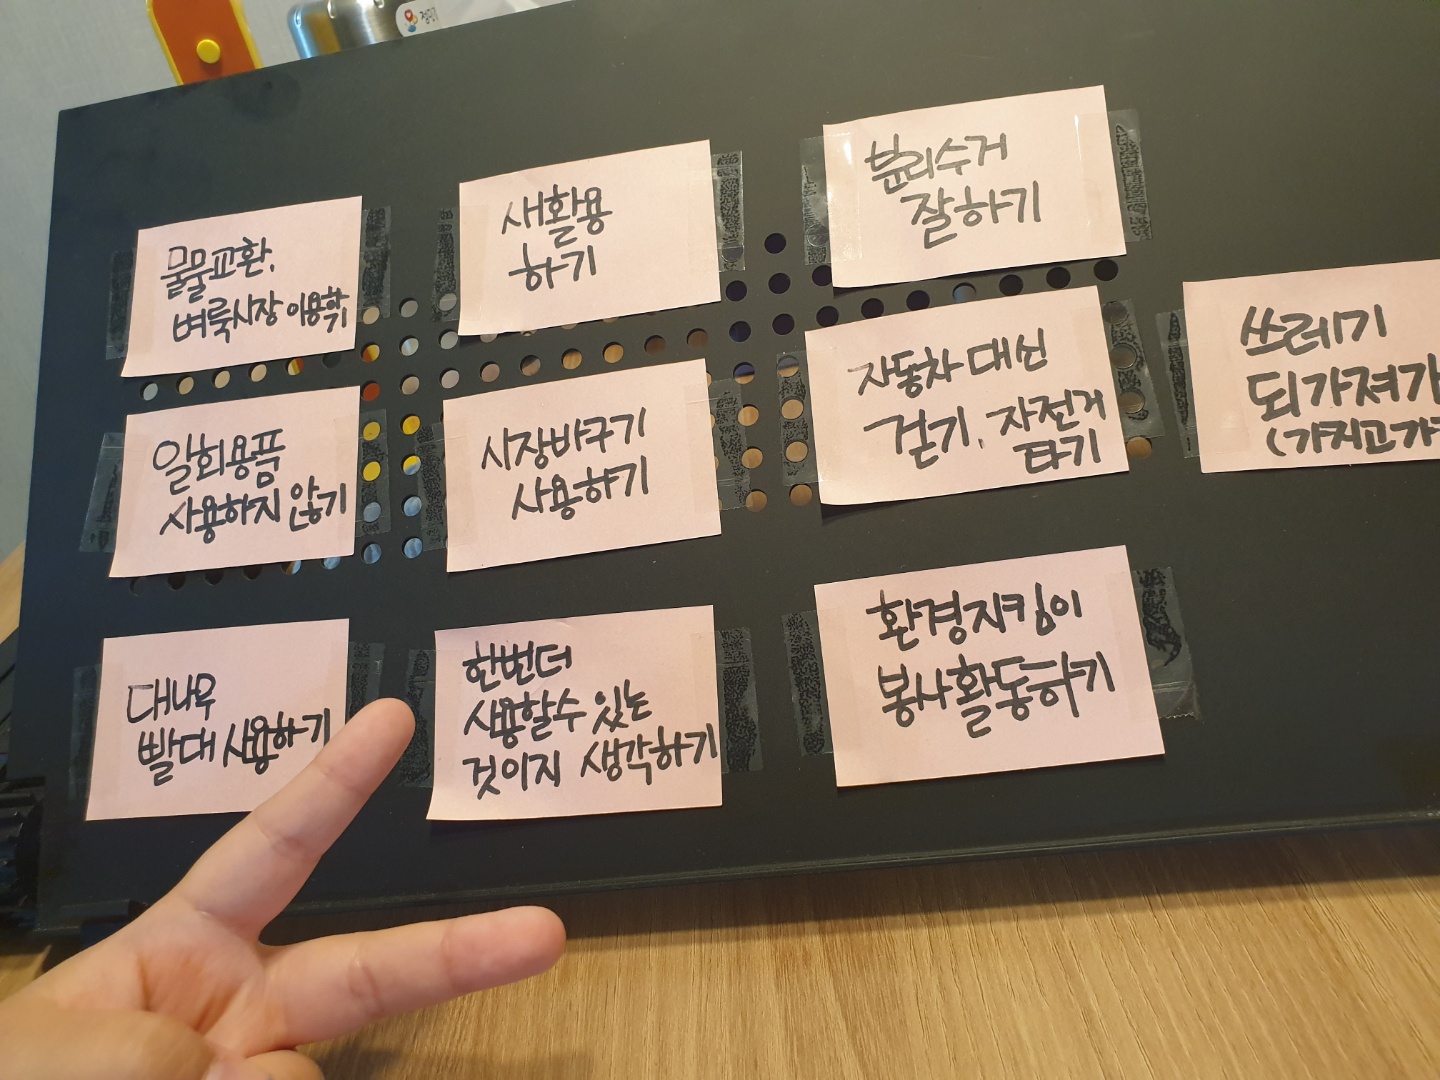 물물교환,
벼룩시장 이용하기
새활용
하기
분리수거
잘하기
일회용품
사용하지 않기
시장바구기
사용하기
자동차 대신
걷기, 자전거
타기
쓰레기
되가져가
(가지고가
대나무
빨대 사용하기
한번더
사용할수 있는
것이지 생각하기
환경지킴이
봉사활동하기